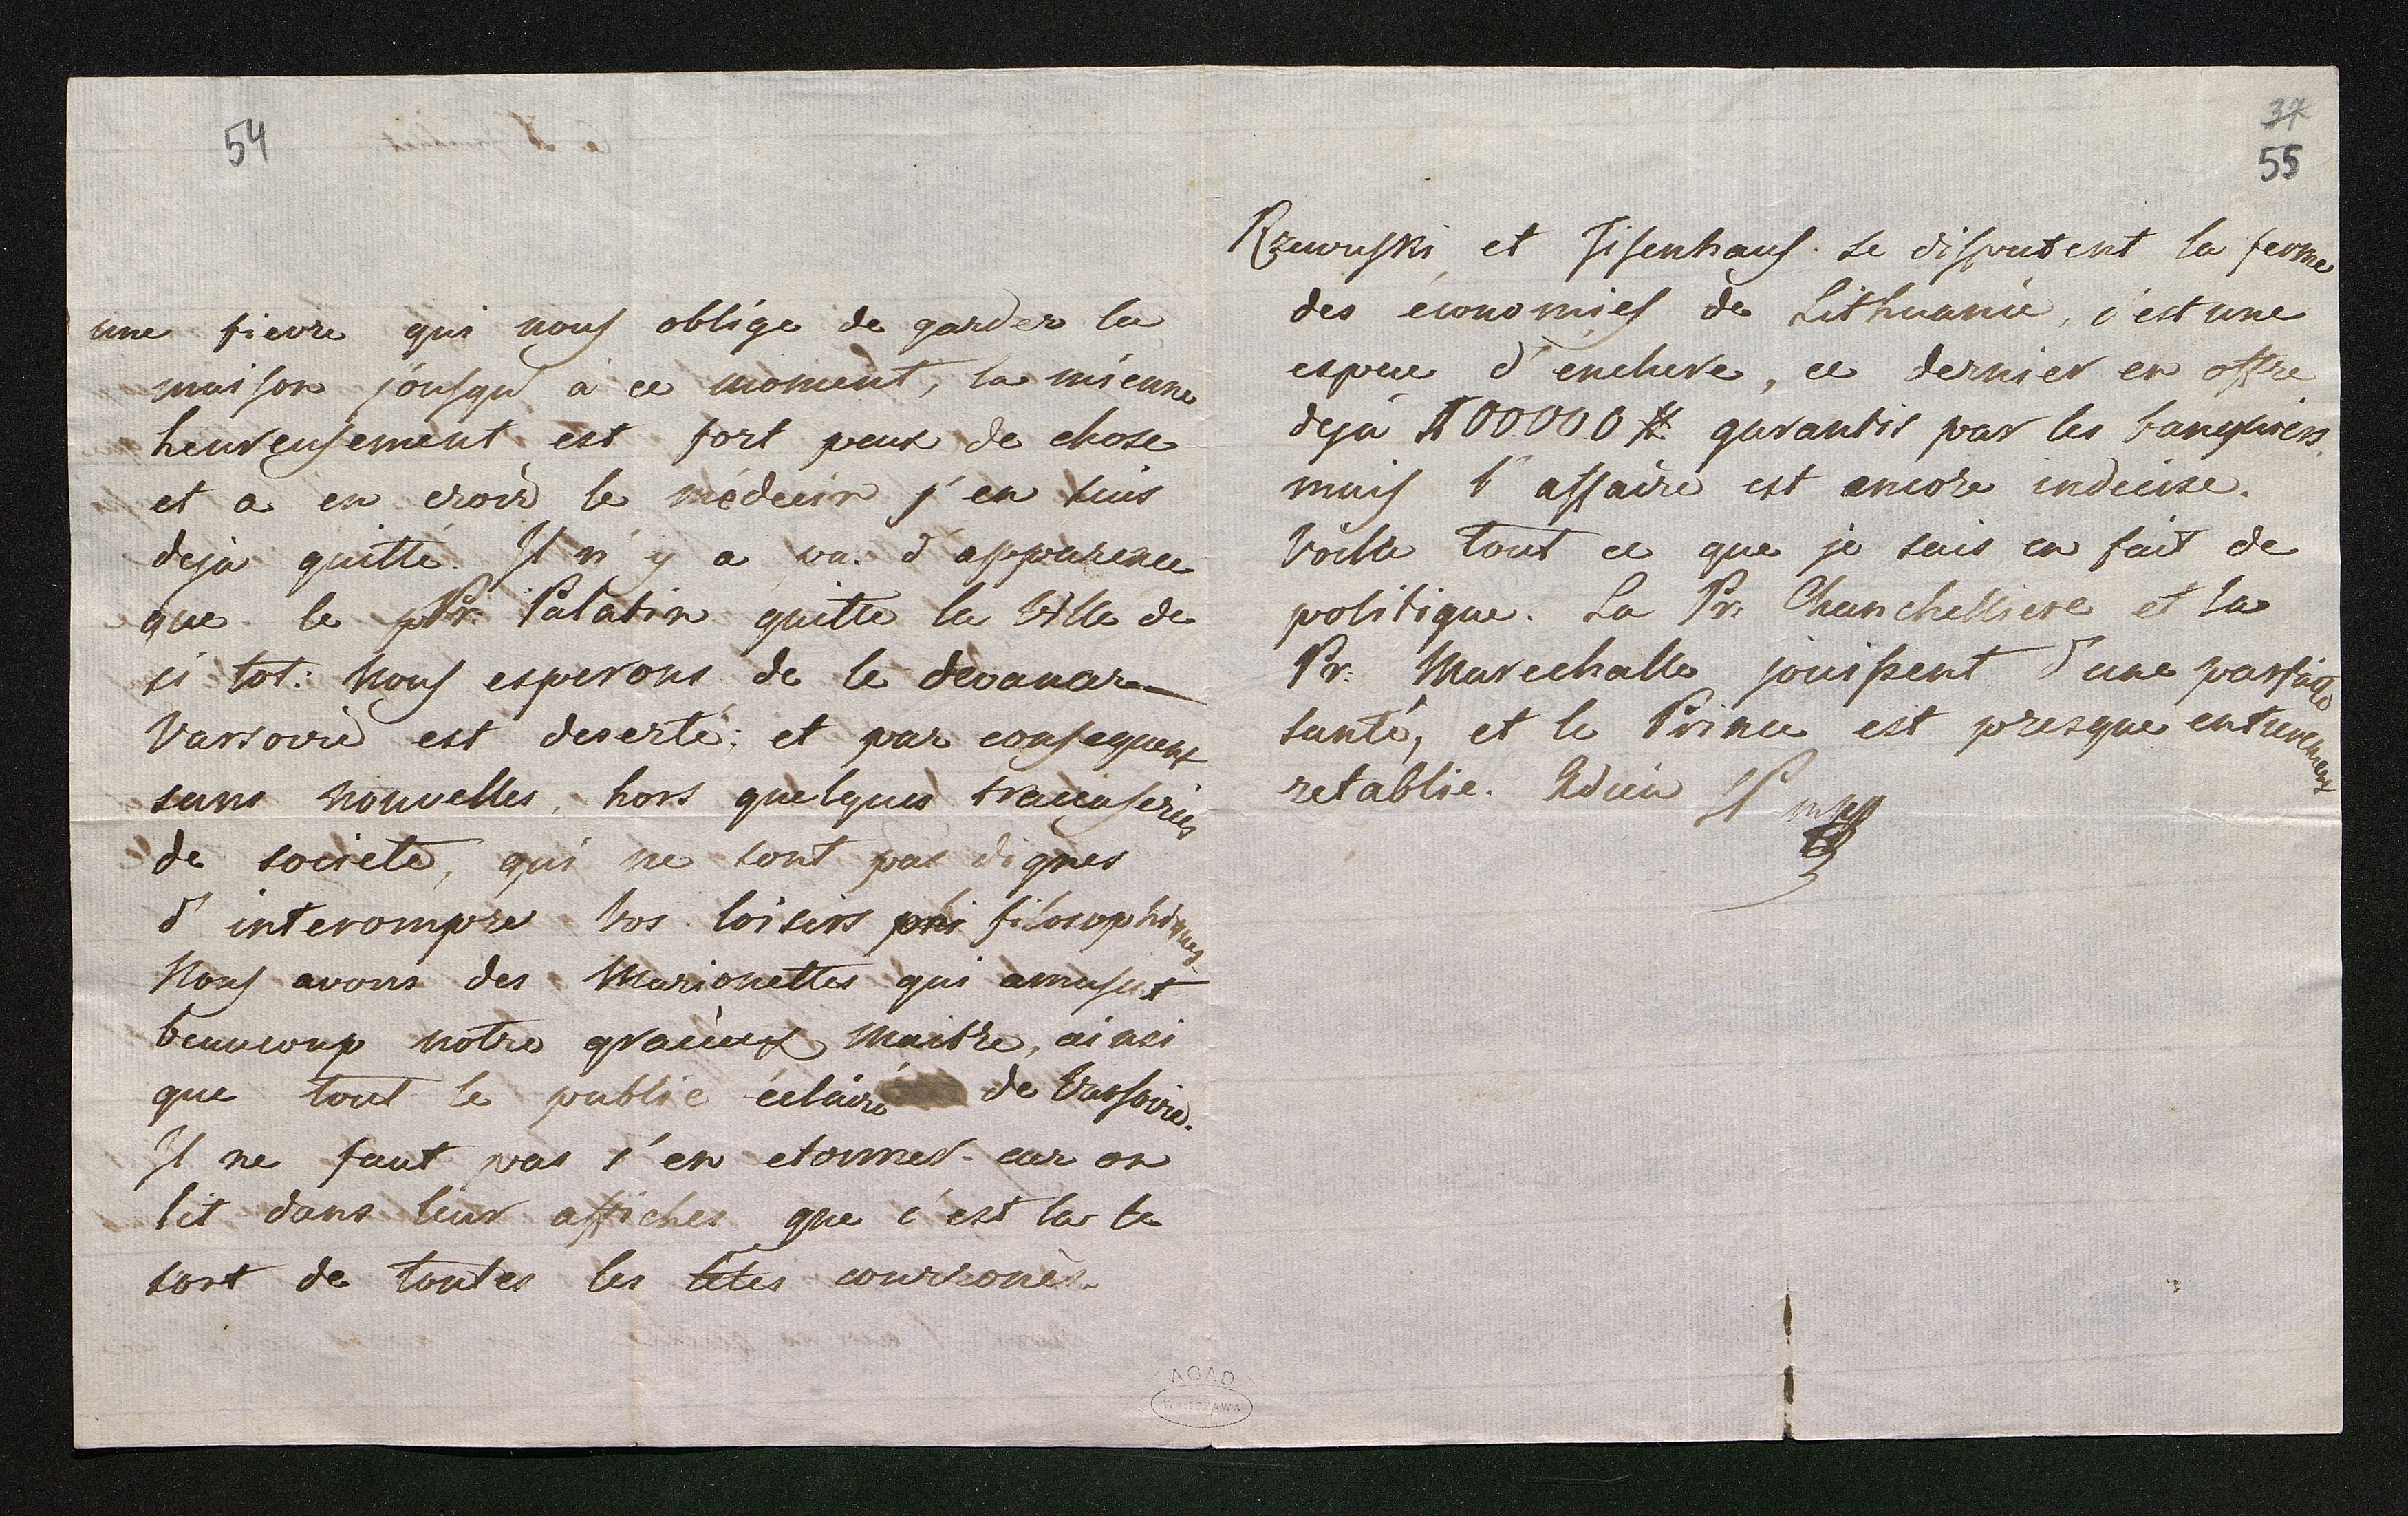 54
une fievre qui nous oblige de garder la
maison jousqu'à ce moment, la mienne
heureusement est fort peux de chose
et a en croir le médecin j'en suis
deja quitté. Il n'y a pa. d'apparence
que le Pr. Palatin quitte la Ville de
si tot: Nous esperons de le devancer
Varsovie est deserté; et par consequent
sans nouvelles, hors quelques tracuseries
de societe, qui ne sont pas dignes
d'interompre vos loisirs filosophiques
Nous avons des Marionettes qui amusent
beaucoup notre gracieux Maitre, ainsi
que tout le public éclairé de Varsovie.
Il ne faut pas s'en etonner car on
lit dans leur affiches que c'est la le
sort de toutes les têtes couronés.
37
55
Rzewuski et Tisenhaus se disputent la ferme
des économies de Lithuanie, c'est une
espece d'enchere, ce dernier en offre
deja 100000 # garantis par les banquiers
mais l'affaire est encore indecise.
Voila tout ce que je sais en fait de
politique. La Pr. Chanchelliere et la
Pr. Marechalle jouissent d'une parfaite
santé, et le Prince est presque entierement
retablie. Adieu
AGAD
WARSZAWA